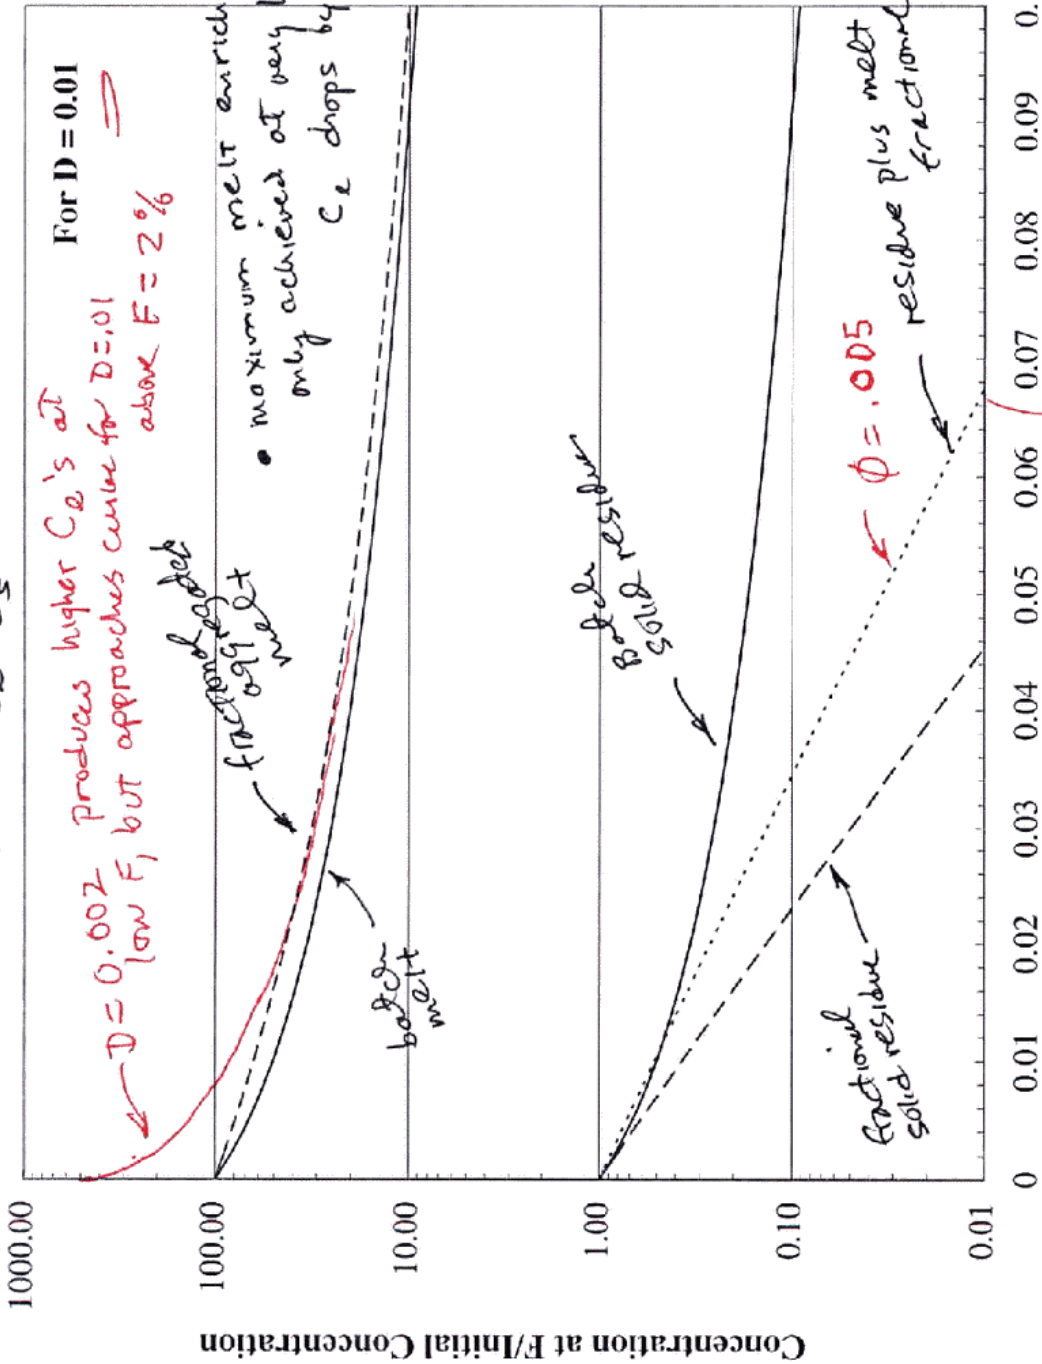 For D = 0.01
D = 0.002 produces higher Cℓ's at
low F, but approaches curve for D=.01
above F = 2%
• maximum melt enrich
only achieved at very
Cℓ drops by
fractional
agg
melt
batch
melt
Batch
solid residue
φ = .005
residue plus melt
fractional
fractional
solid residue
1000.00
100.00
10.00
1.00
0.10
0.01
Concentration at F/Initial Concentration
0
0.01
0.02
0.03
0.04
0.05
0.06
0.07
0.08
0.09
0.